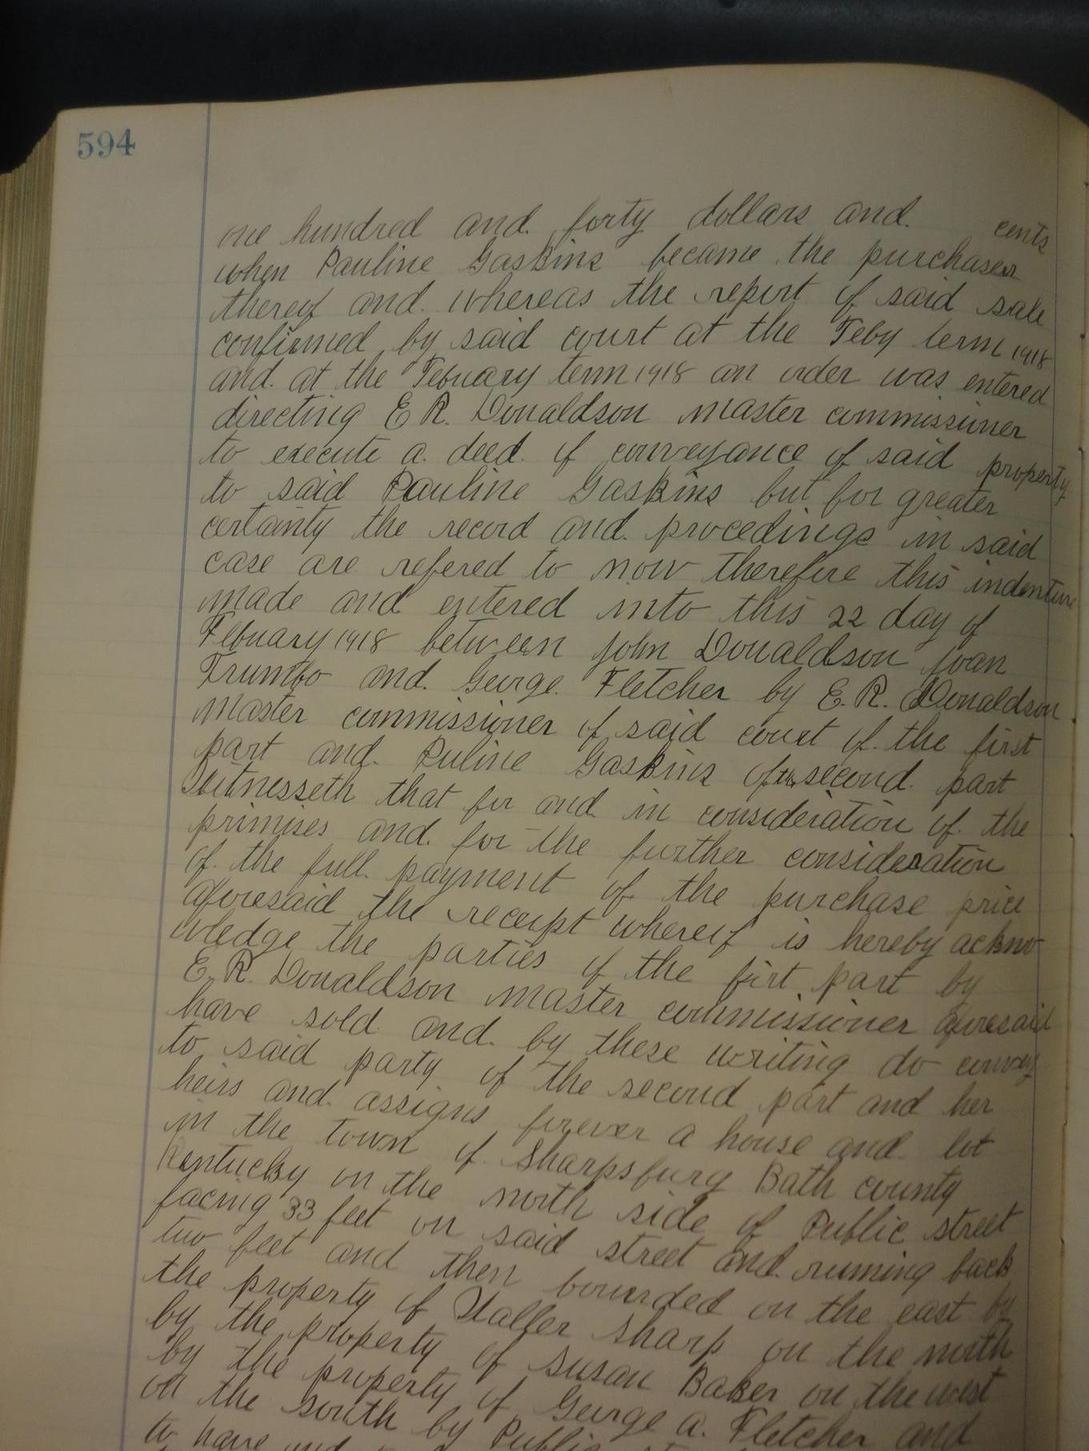 594
one hundred and forty dollars and cents
when Pauline Gaskins became the purchaser
thereof and whereas the report of said sale
confirmed by said court at the Feby term 1918
and at the Febuary term 1918 an order was entered
directing E R. Donaldson master commissioner
to execute a deed of conveyance of said property
to said Pauline Gaskins but for greater
certainty the record and procedings in said
case are refered to now therefore this indenture
made and entered into this 22 day of
Febuary 1918 between John Donaldson Joan
Trumbo and George Fletcher by E. R. Donaldson
Master commissioner of said court of the first
part and Puline Gaskins of the second part
Witnesseth that for and in consideration of the
primises and for the further consideration
of the full payment of the purchase price
aforesaid the receipt whereof is hereby ackno
wledge the parties of the firt part by
E. R. Donaldson master commissioner aforesaid
have sold and by these writing do convey
to said party of the second part and her
heirs and assigns forever a house and lot
in the town of Sharpsburg Bath county
Kentucky on the north side of Public street
facing 33 feet on said street and running back
two feet and then bounded on the east by
the property of Waller Sharp on the north
by the property of Susan Baker on the west
by the property of George A. Fletcher and
on the south by Public
to have and